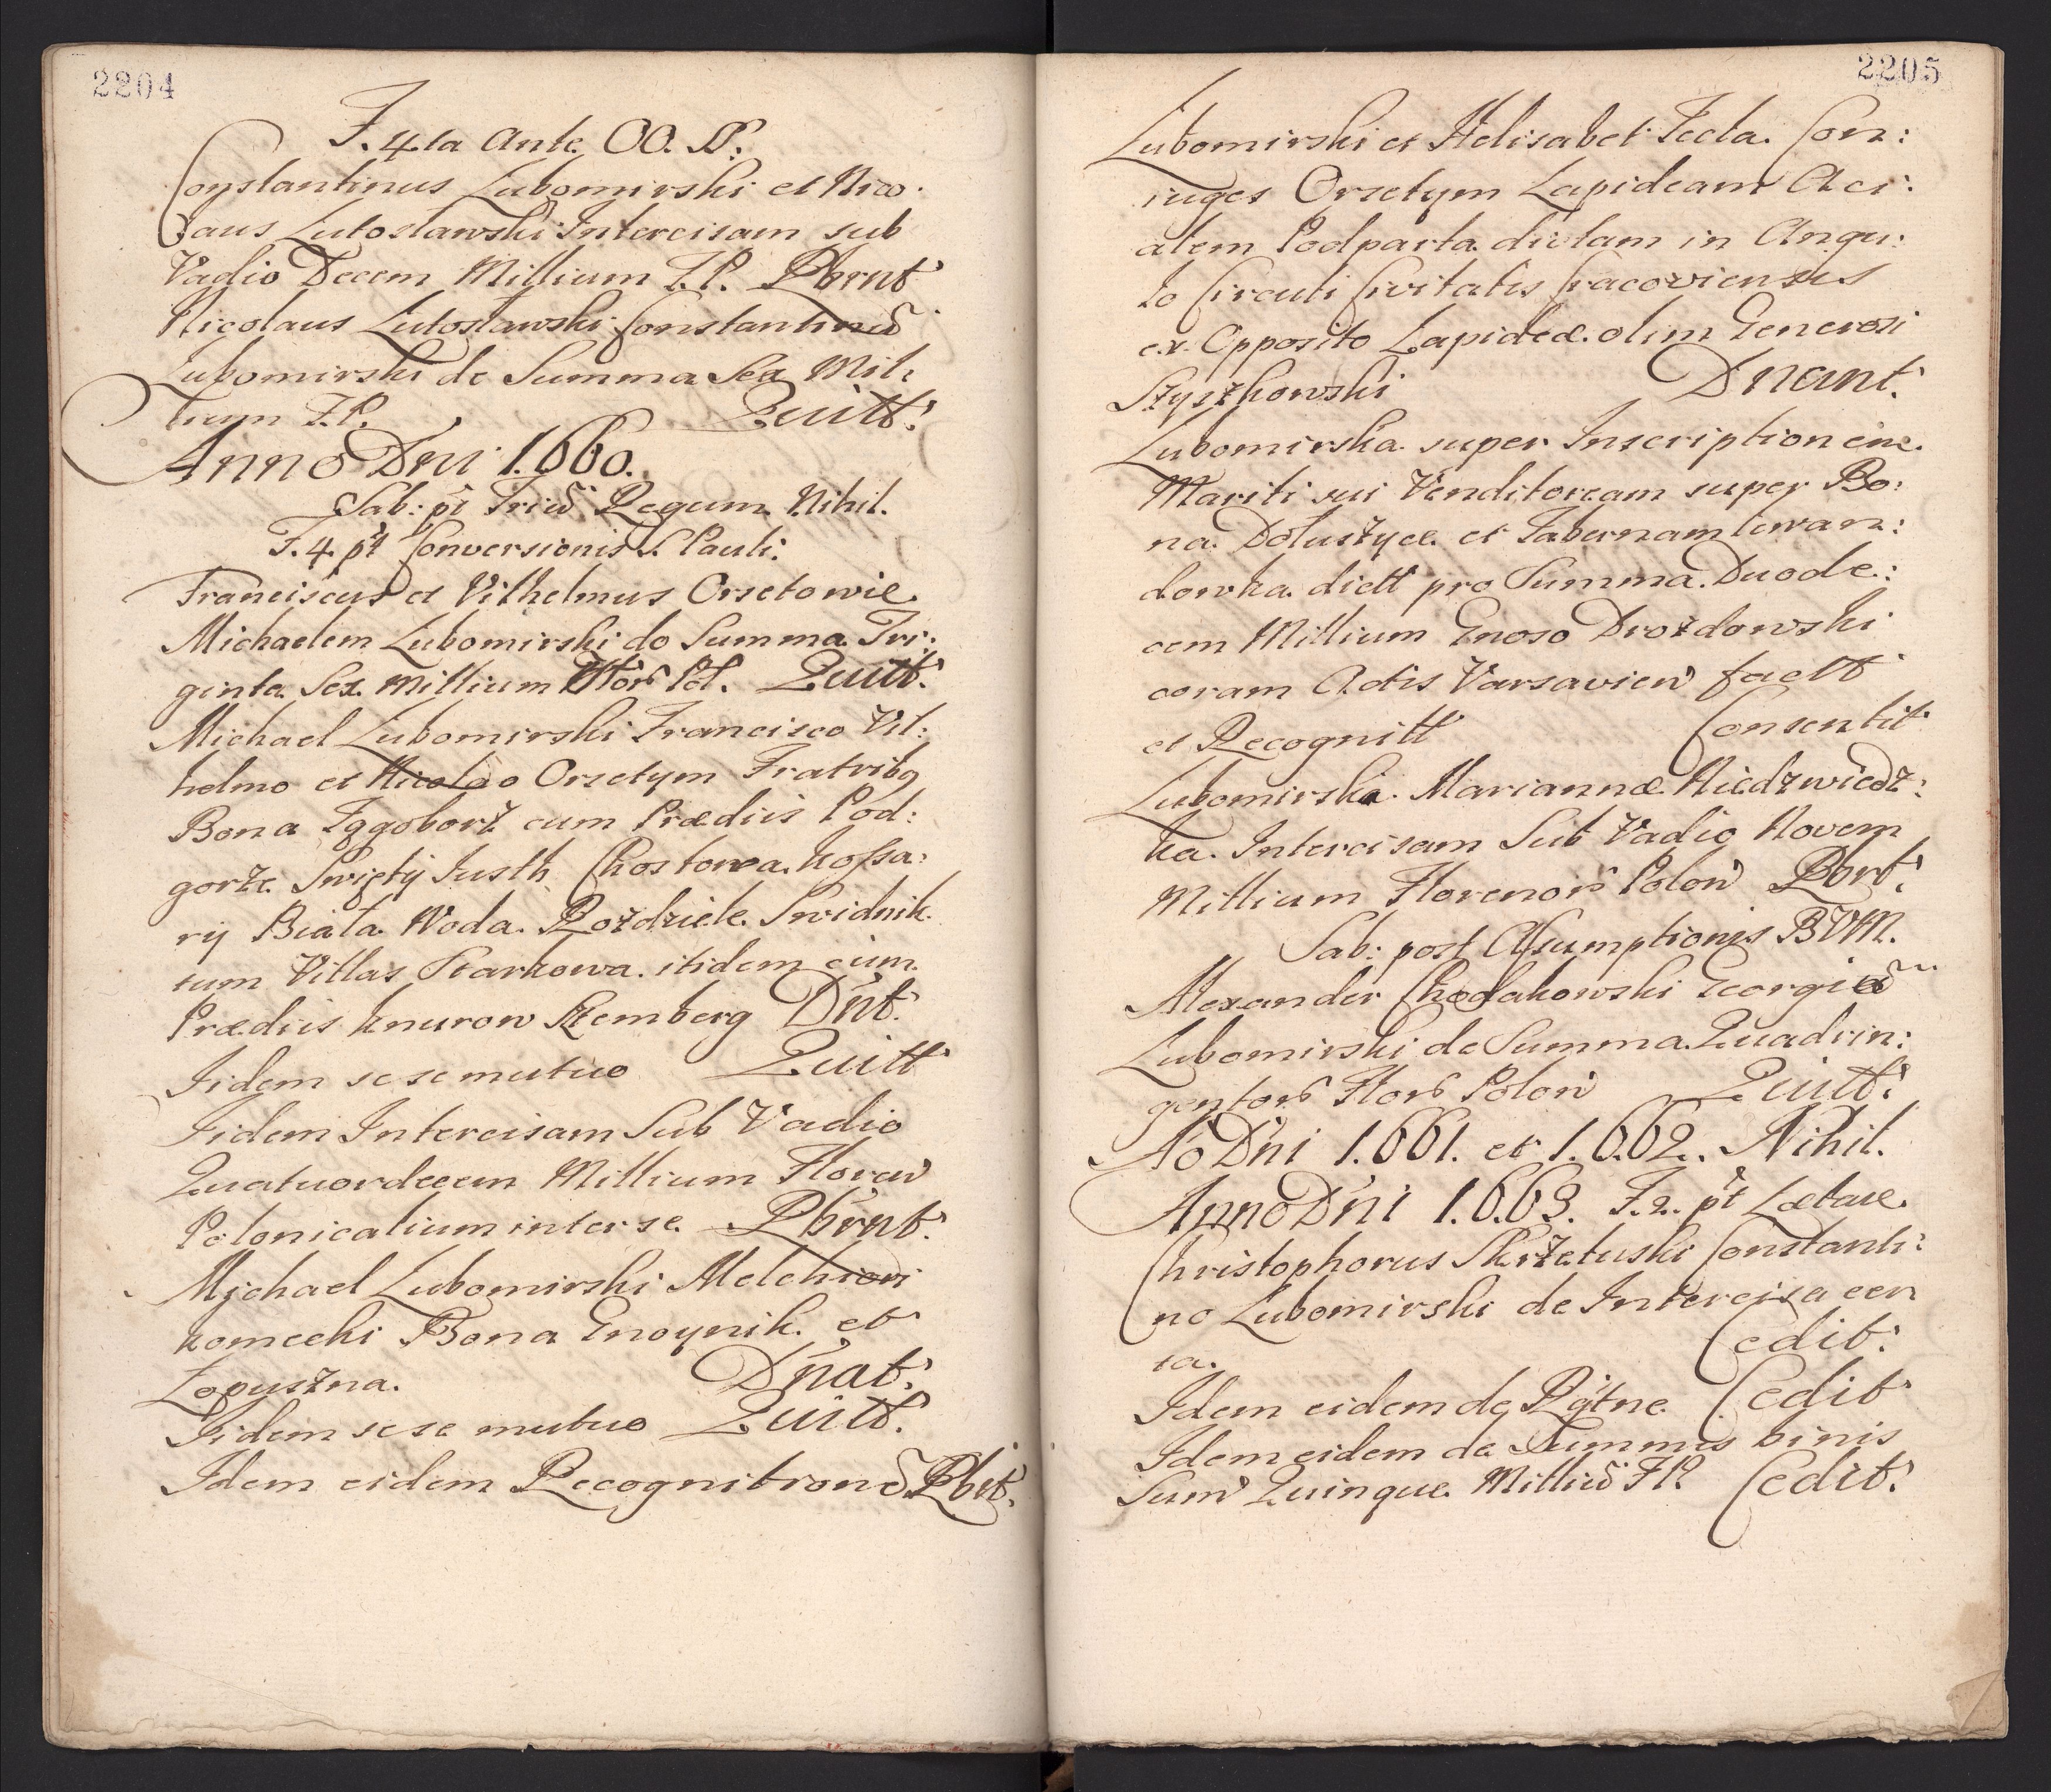 2204
F. 4ta Ante OO. SS.
Constantinus Lubomirski et Nico:
laus Lutosławski Intercisam sub
Vadio Decem Millium F.P. Rbrnt
Nicolaus Lutosławski Constantinū
Lubomirski de Summa Sex Mil:
lium F.P. Quitt:
Anno Dni 1660.
Sab: pt Triū Regum Nihil.
F. 4. pt Conversionis S. Pauli.
Franciscus et Vilhelmus Orsetowie
Michaelem Lubomirski do Summa Tri:
ginta Sex Millium Flor Pol. Quitt:
Michael Lubomirski Francisco Vil:
helmo et Nicolao Orsetym Fratribg
Bona Zggoborz cum Prædiis Pod:
gorze Swięty Justh Chostowa Kossa:
ry Biała Woda Rozdziele Swidnik
tum Villas Starkowa itidem cum
Prædiis Knurow Szemberg Dnt:
Iidem sese mutuo Quitt
Iidem Intercisam Sub Vadio
Quatuordecem Millium Floren
Polonicalium inter se Rbrnt:
Michael Lubomirski Melchiori
Komecki Bona Gnoynik et
Łopuszna. Dnat:
Iidem sese mutuo Quitt:
Idem eidem Recognitionē Rbit:
2205
Lubomirski et Helisabet Tecla Con:
iuges Orsetym Lapideam Aci:
alem Podparta dictam in Angu:
lo Circuli Civitatis Cracoviensis
ex Opposito Lapideæ olim Generosi
Szyszkowski Dnant:
Lubomirska super Inscriptionem
Mariti sui Venditoream super Bo:
na Dołuszyce et Tabernam lewan:
dowka dictt pro Summa Duode:
cem Millium Gnoso Drozdowski
coram Actis Varsavien factt
et Recognitt Consentit
Lubomirska Mariannæ Niedzwiedz:
ka Intercisam Sub Vadio Novem
Millium Florenor Polon Rbrt:
Sab: post Assumptionis BVM.
Alexander Chodakowski Georgiū
Lubomirski de Summa Quadrin:
gentor Flor Polon Quitt:
Ao Dni 1661. et 1662. Nihil.
Anno Dni 1663. F. 2. pt Lætare
Christophorus Skrzetuski Constanti:
no Lubomirski de Intercisa cer
ta. Cedit:
Idem eidem de Rgtne Cedit
Idem eidem de Summis binis
Sum Quinque Milliū Fl. Cedit: